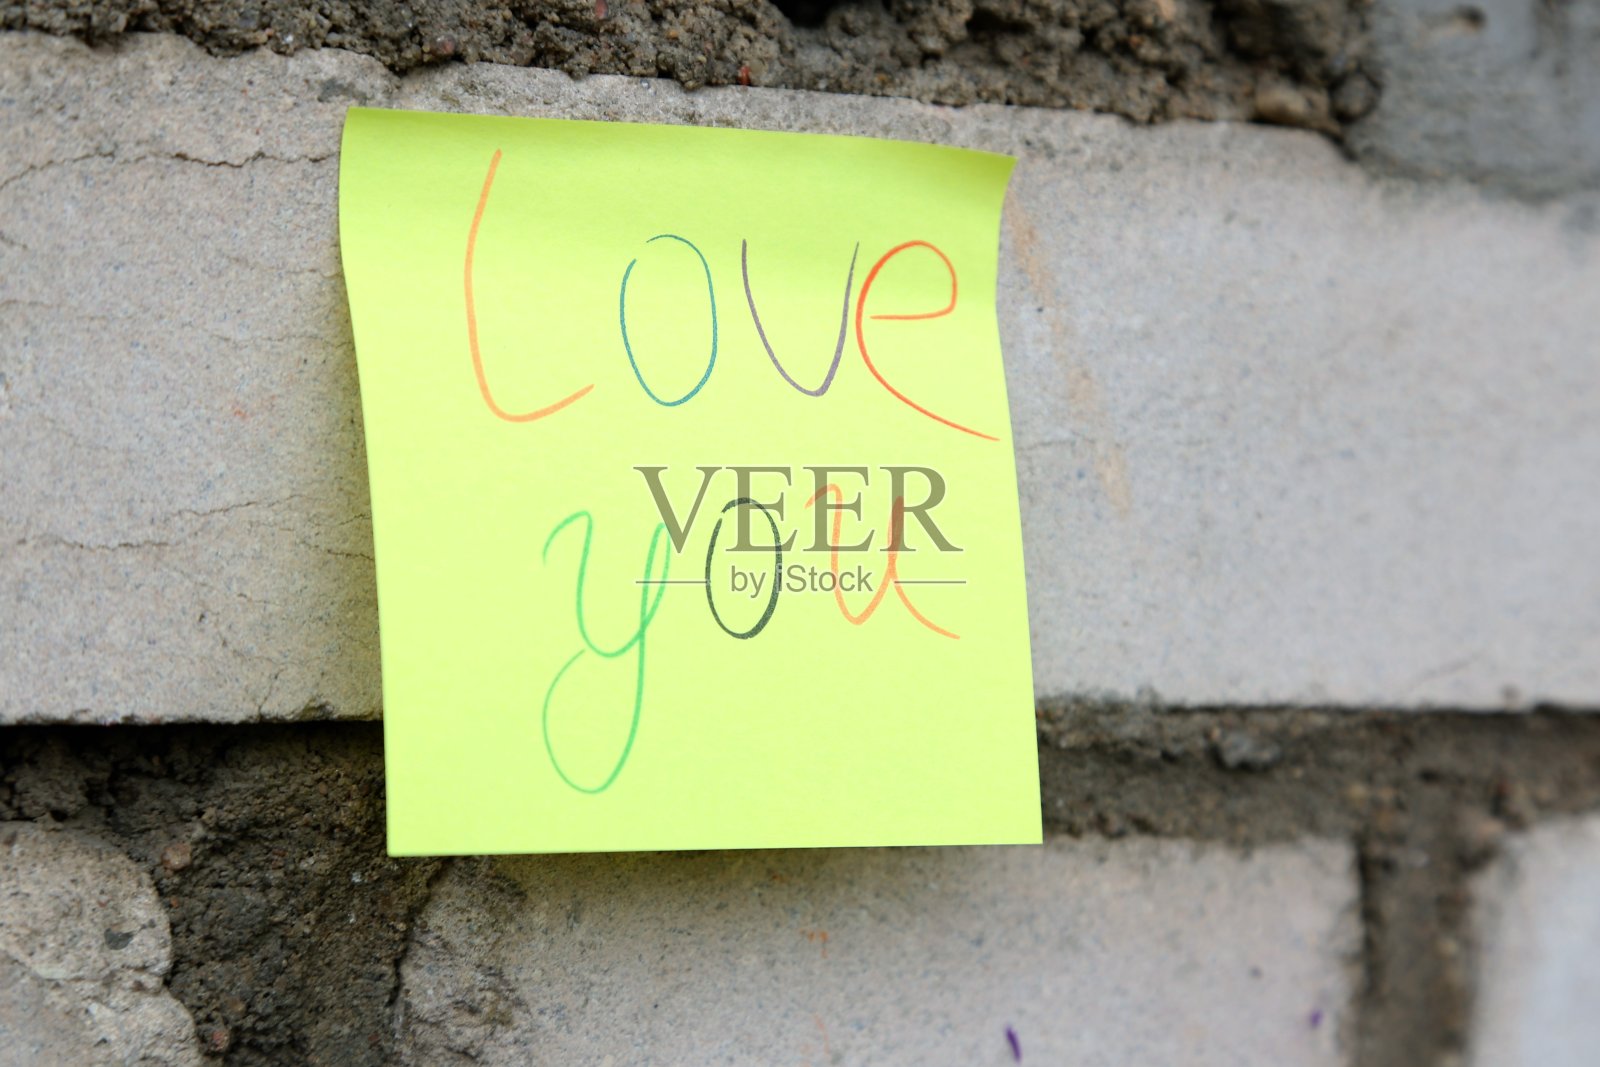 Love
you
VEER
by iStock